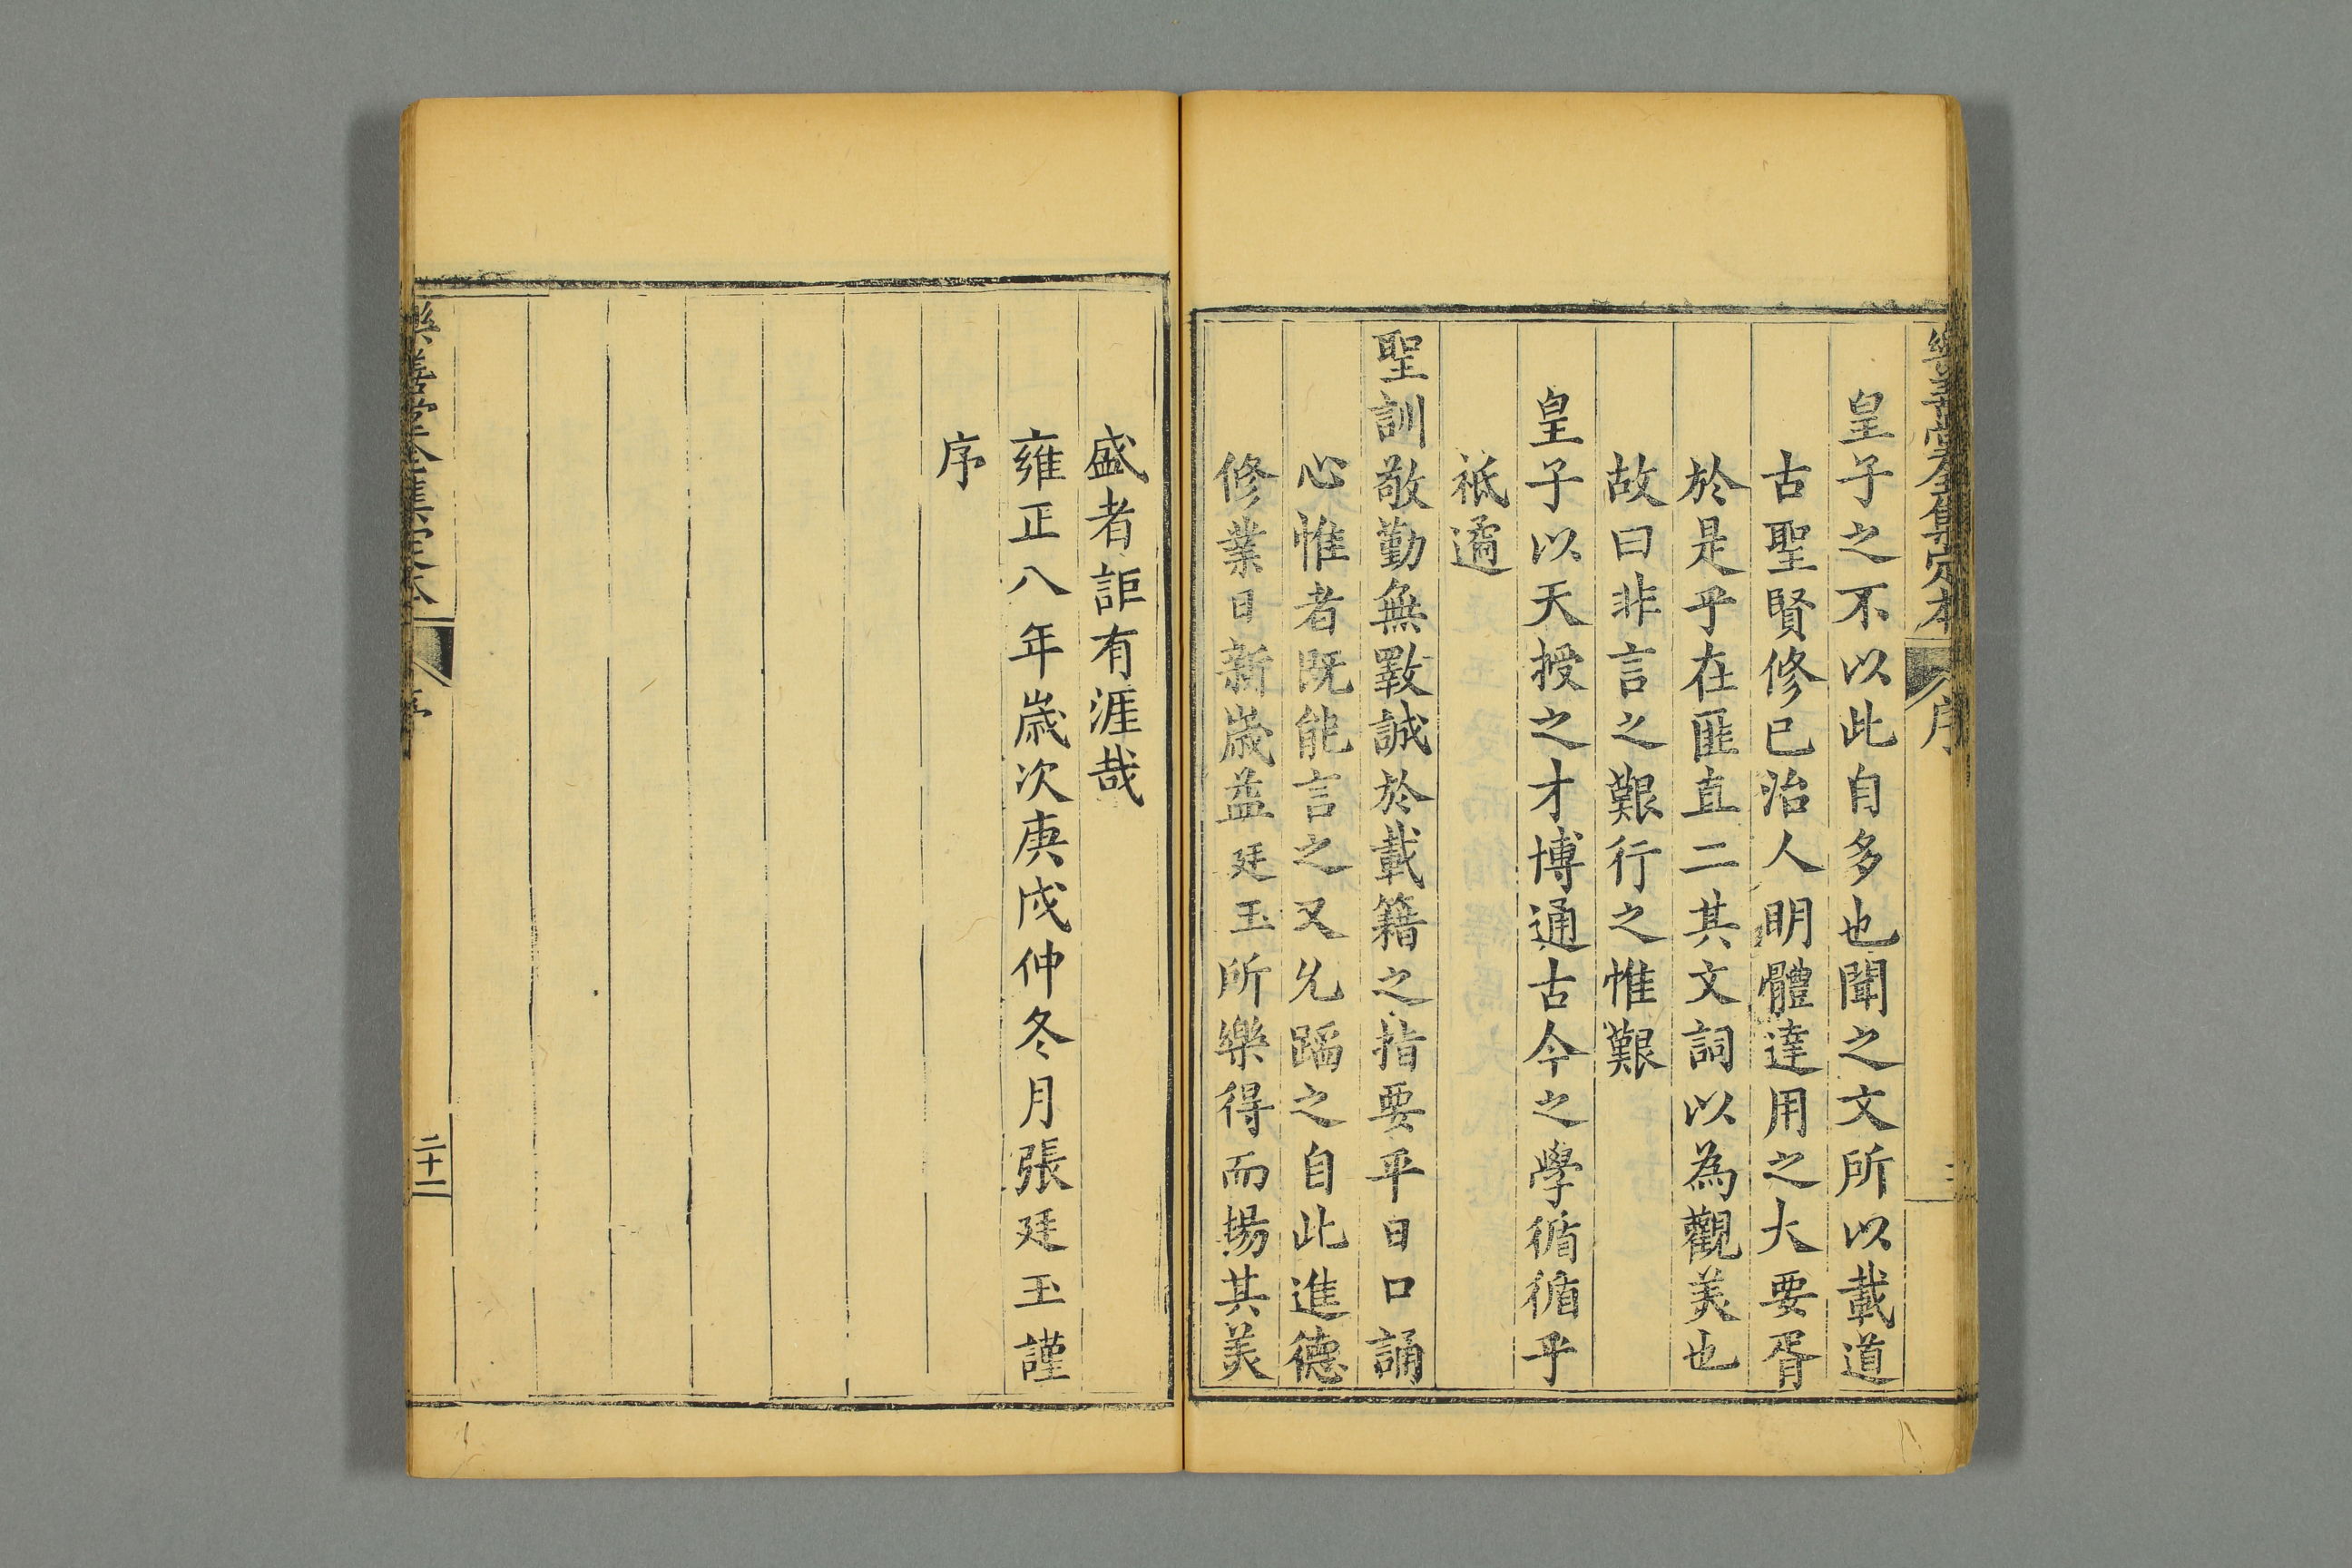 樂善堂全集定本
序
皇子之不以此自多也聞之文所以載道
古聖賢修已治人明體達用之大要胥
於是乎在匪直二其文詞以為觀美也
故曰非言之艱行之惟艱
皇子以天授之才博通古今之學循循乎
祗遹
聖訓敬勤無斁誠於載籍之指要平日口誦
心惟者既能言之又允蹈之自此進德
修業日新歲益廷玉所樂得而揚其美
盛者詎有涯哉
雍正八年歲次庚戌仲冬月張廷玉謹
序
樂善堂全集定本
二十二